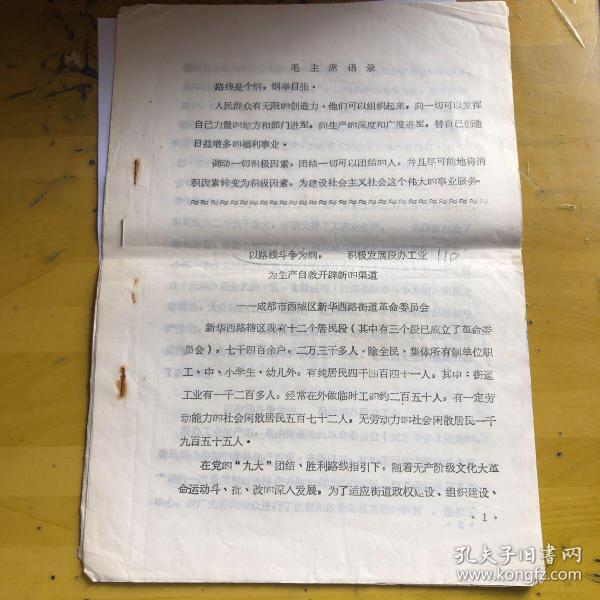 毛主席语录
路线是个纲，纲举目张。
人民群众有无限的创造力。他们可以组织起来，向一切可以发挥
自己力量的地方和部门进军，向生产的深度和广度进军，替自己创造
日益增多的福利事业。
调动一切积极因素，团结一切可以团结的人，并且尽可能地将消
积因素转变为积极因素，为建设社会主义社会这个伟大的事业服务。
以路线斗争为纲， 积极发展段办工业 110
为生产自救开辟新的渠道
——成都市西城区新华西路街道革命委员会
新华西路辖区现有十二个居民段（其中有三个段已成立了革命委
员会），七千四百余户，二万三千多人。除全民、集体所有制单位职
工、中、小学生、幼儿外，有纯居民四千四百四十一人，其中：街道
工业有一千二百多人，经常在外做临时工的约二百五十人，有一定劳
动能力的社会闲散居民五百七十二人，无劳动力的社会闲散居民一千
九百五十五人。
在党的“九大”团结、胜利路线指引下，随着无产阶级文化大革
命运动斗、批、改的深入发展，为了适应街道政权建设、组织建设、
·1·
孔夫子旧书网
www.kongfz.com